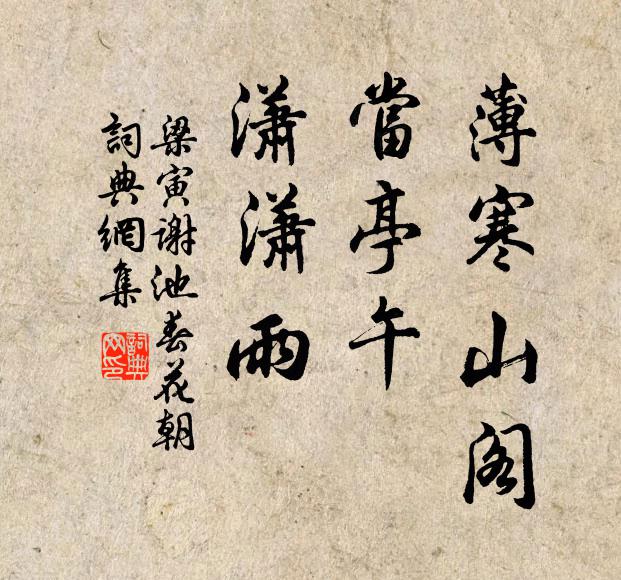 薄寒山閣
當亭午
瀟瀟雨
梁寅謝池春花朝
詞典網集
詞典
网印